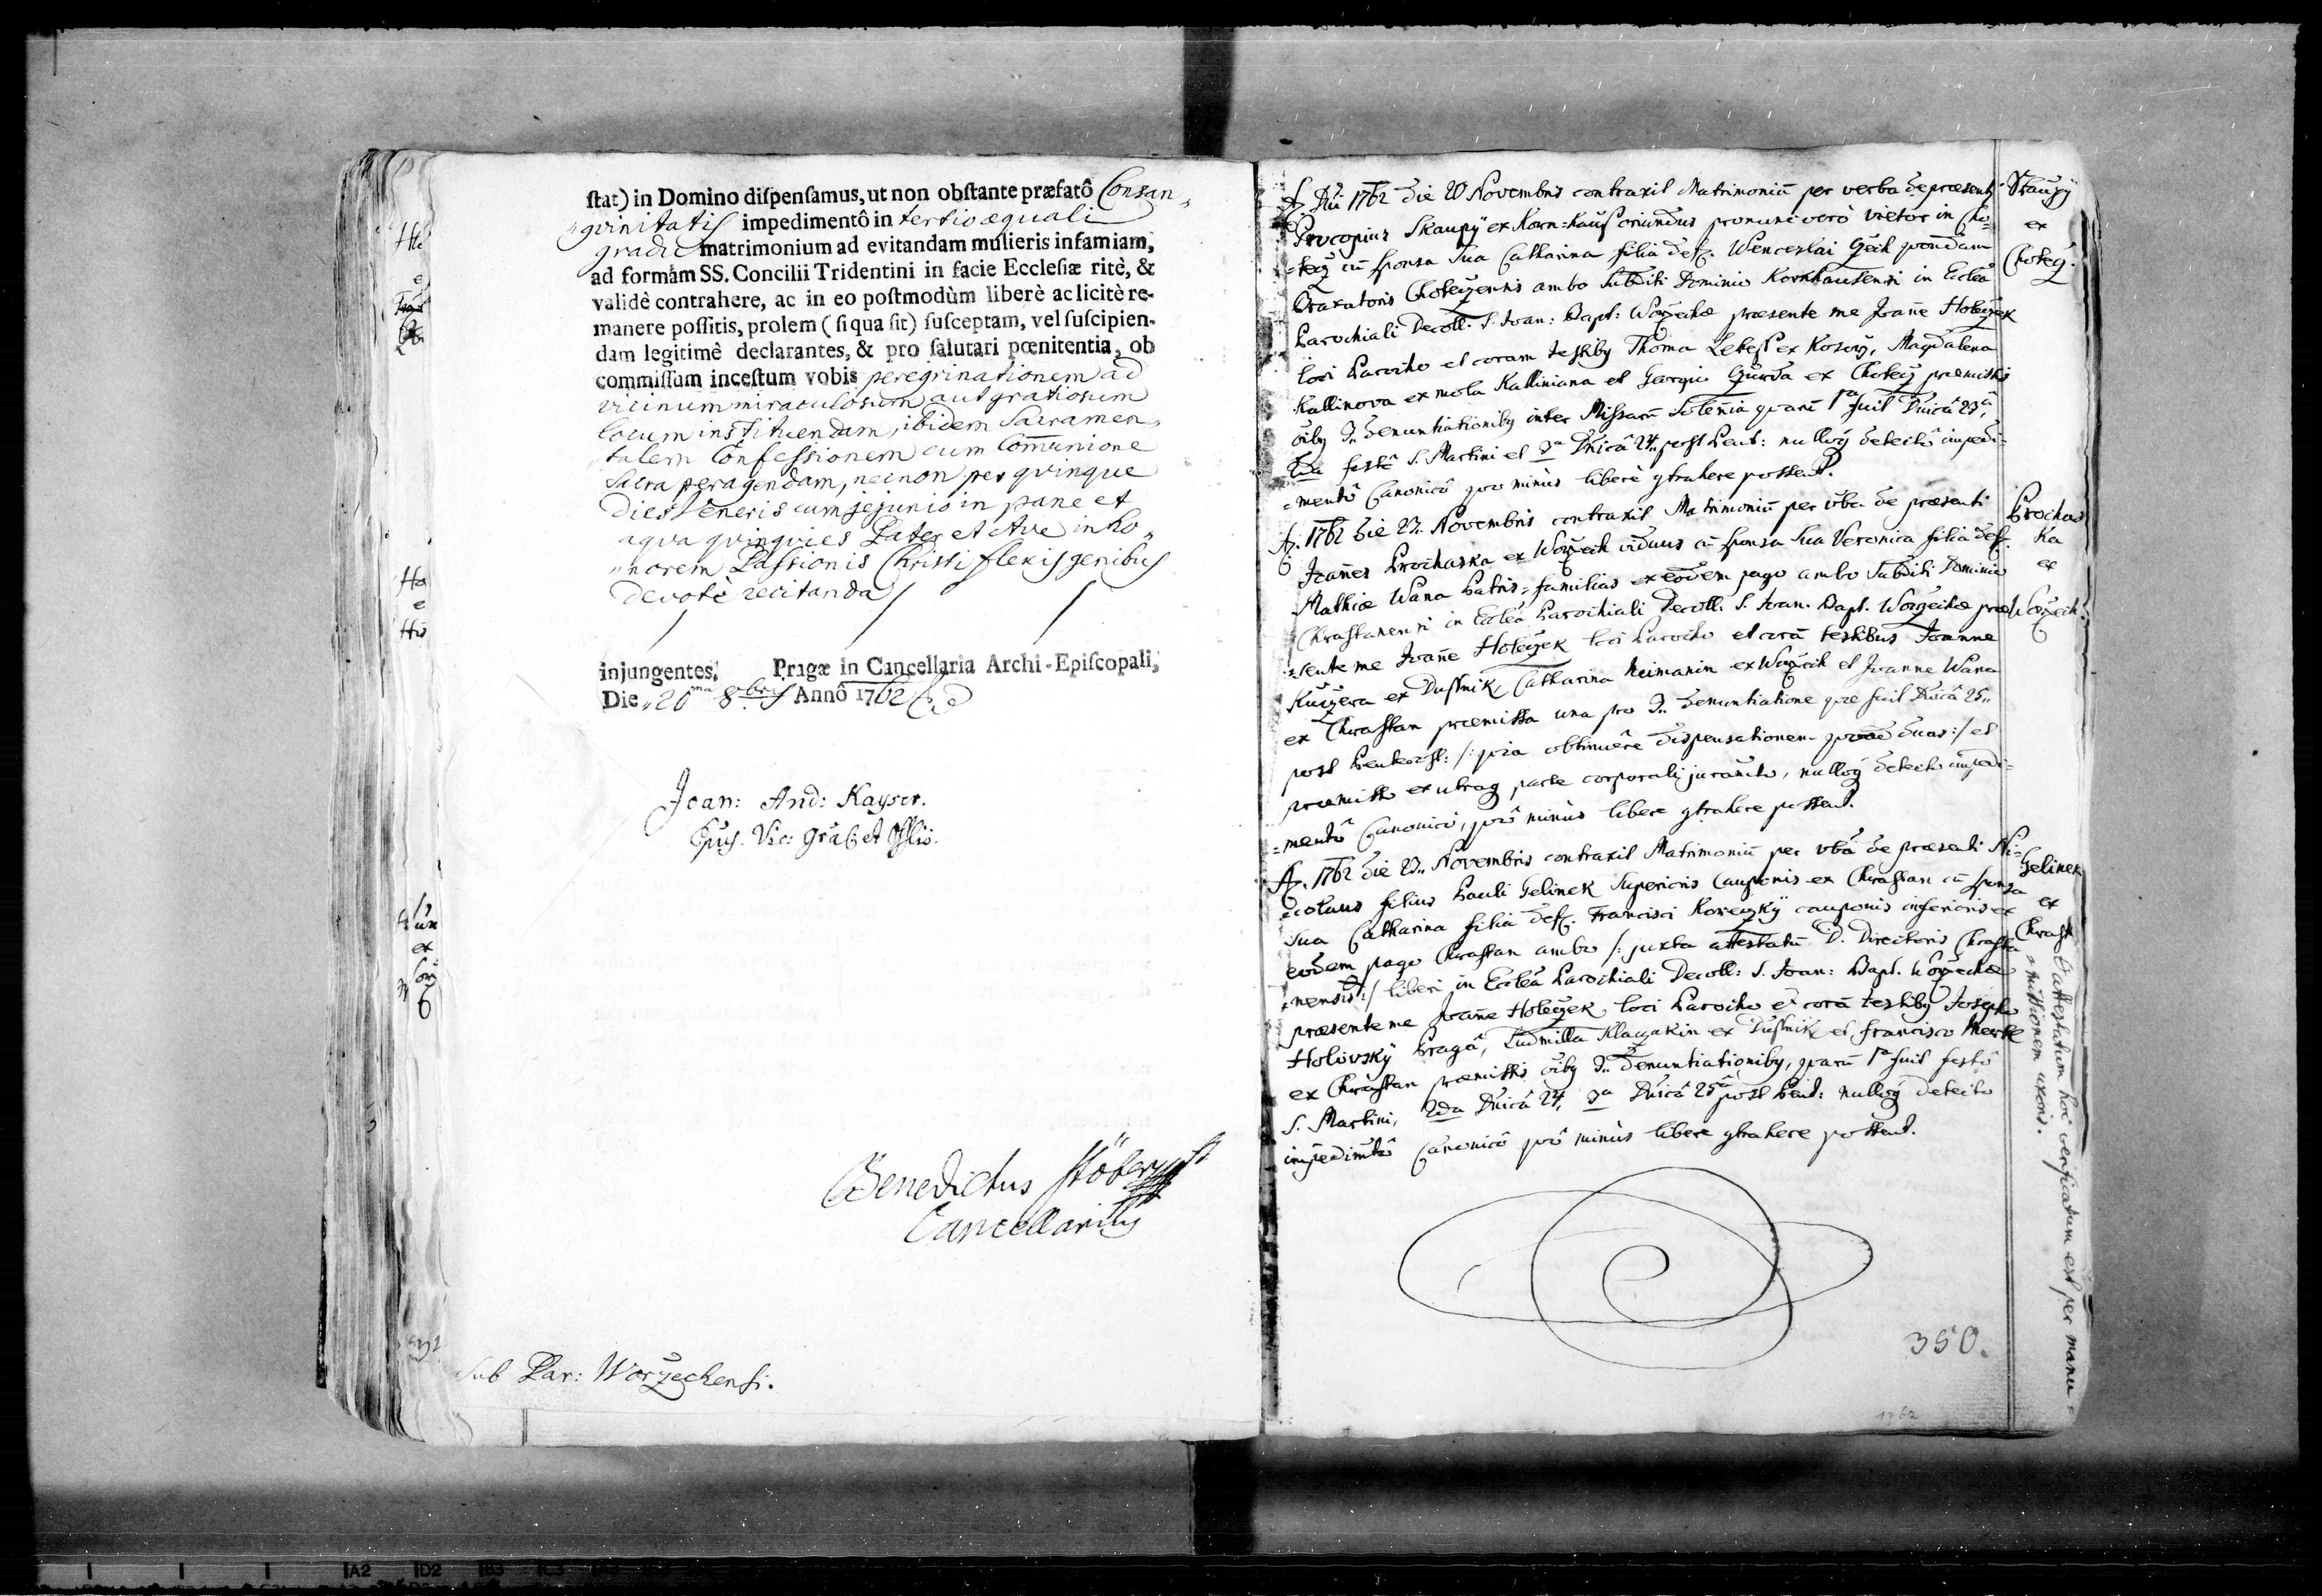 ſtat) in Domino diſpenſamus, ut non obſtante præfatô Consan„
„gvinitatis impedimentô in tertio æquali
gradu matrimonium ad evitandam mulieris infamiam,
ad formâm SS. Concilii Tridentini in facie Eccleſiæ ritè, &
validè contrahere, ac in eo poſtmodùm liberè ac licitè re-
manere poſſitis, prolem (ſi qua ſit) ſuſceptam, vel ſuſcipien-
dam legitimê declarantes, & pro ſalutari pœnitentia, ob
commiſſum inceſtum vobis peregrinationem ad
vicinum miraculosum aut gratiosum
locum instituendam, ibidem Sacramen„
talem Confessionem cum Com̄unione
Sacra peragendam, nec non per qvinque
dies Veneris cum jejunio in pane et
aqva qvinqvies Pater et Ave in ho„
„norem Passionis Christi flexis genibus
devotè recitanda
injungentes. Pragæ in Cancellaria Archi-Epiſcopali,
Die 26ma 8bris Annô 1762
Joan: And: Kayser.
Epus. Vic: gralis et Offlis.
Benedictus Stöber
Cancellarius
Sub Par: Woržechensi.
A. Dni 1762 die 20 Novembris contraxit Matrimoniū per verba de præsenti
Procopius Skaupÿ ex Korn=haus oriundus pronunc verò vietor in Cho=
=teč cū sponsa sua Catharina filia def. Wenceslai Čech quondam
Braxatoris Chotečensis ambo Subditi Dominio Kornhausensi in Ecclea
Parochiali Decoll: S. Joan: Bapt: Woržechæ præsente me Joañe Holeček
loci Parocho et coram testiby Thoma ex Kosoř, Magdalena
Kallinova ex mola Kalliniana et Georgio Gurda ex Choteč præmissis
oiby 3. denuntiationiby inter Missarū Solenia quarū 1ma fuit Dnica 23a,
2da festô S. Martini et 3a Dnicâ 24. post Pent: nulloq detectô impedi=
=mentô Canonicô quo minùs liberè qtrahere possent.
A. 1762 die 23. Novembris contraxit Matrimoniū per vba de præsenti
Joañes Prochaska ex Woržech viduus cū sponsa sua Veronica filia def.
Mathiæ Wana Patris=familias ex eodem pago ambo Subditi Dominio
Chrastanensi in Ecclea Parochiali Decoll. S. Joan. Bapt. Woržechæ præ=
=sente me Joañe Holeček loci Parocho et corā testibus Joanne
Kučera ex Dussnik Catharina Neimanin ex Woržech et Joanne Wana
ex Chrasstan præmissa una pro 3. denuntiatione quæ fuit Dnicâ 25.
post Pentecost: /: quia obtinuêre dispensationem quoad duas :/ et
præmisso ex utraq parte corporali juramto, nulloq detecto impedi=
=mentô Canonicô, quô minùs libere qtrahere possent.
A. 1762 die 23. Novembris contraxit Matrimoniū per vba de præsenti Ni=
=colaus filius Pauli Gelinek Superioris Cauponis ex Chrasstan cū sponsa
sua Catharina filia def. Francisci cauponis inferioris ex
eodem pago Chrasstan ambo /: juxta attestatū D. Directoris Chrasta
=nensis :/ liberi in Ecclea Parochiali Decoll: S. Joan: Bapt. Woržechæ
præsente me Joañe Holeček loci Parocho et corā testiby Josepho
Holovskÿ Pragâ, Ludmilla ex Dussnik et Francisco
ex Chrasstan præmissis oiby 3. Denuntiationiby, quarū 1a fuit festô
S. Martini, 2da Dnicâ 24, 3a Dnicâ 25â post Pent: nulloq detecto
impedimtô Canonicô quô minùs libere qtrahere possent.
Skaupÿ
ex
Choteč.
Prochas
ka
ex
Woržech.
Gelinek
ex
Chrasst
Attestatum hoc verificatum est per manu=
=missionem uxoris.
350.
1762